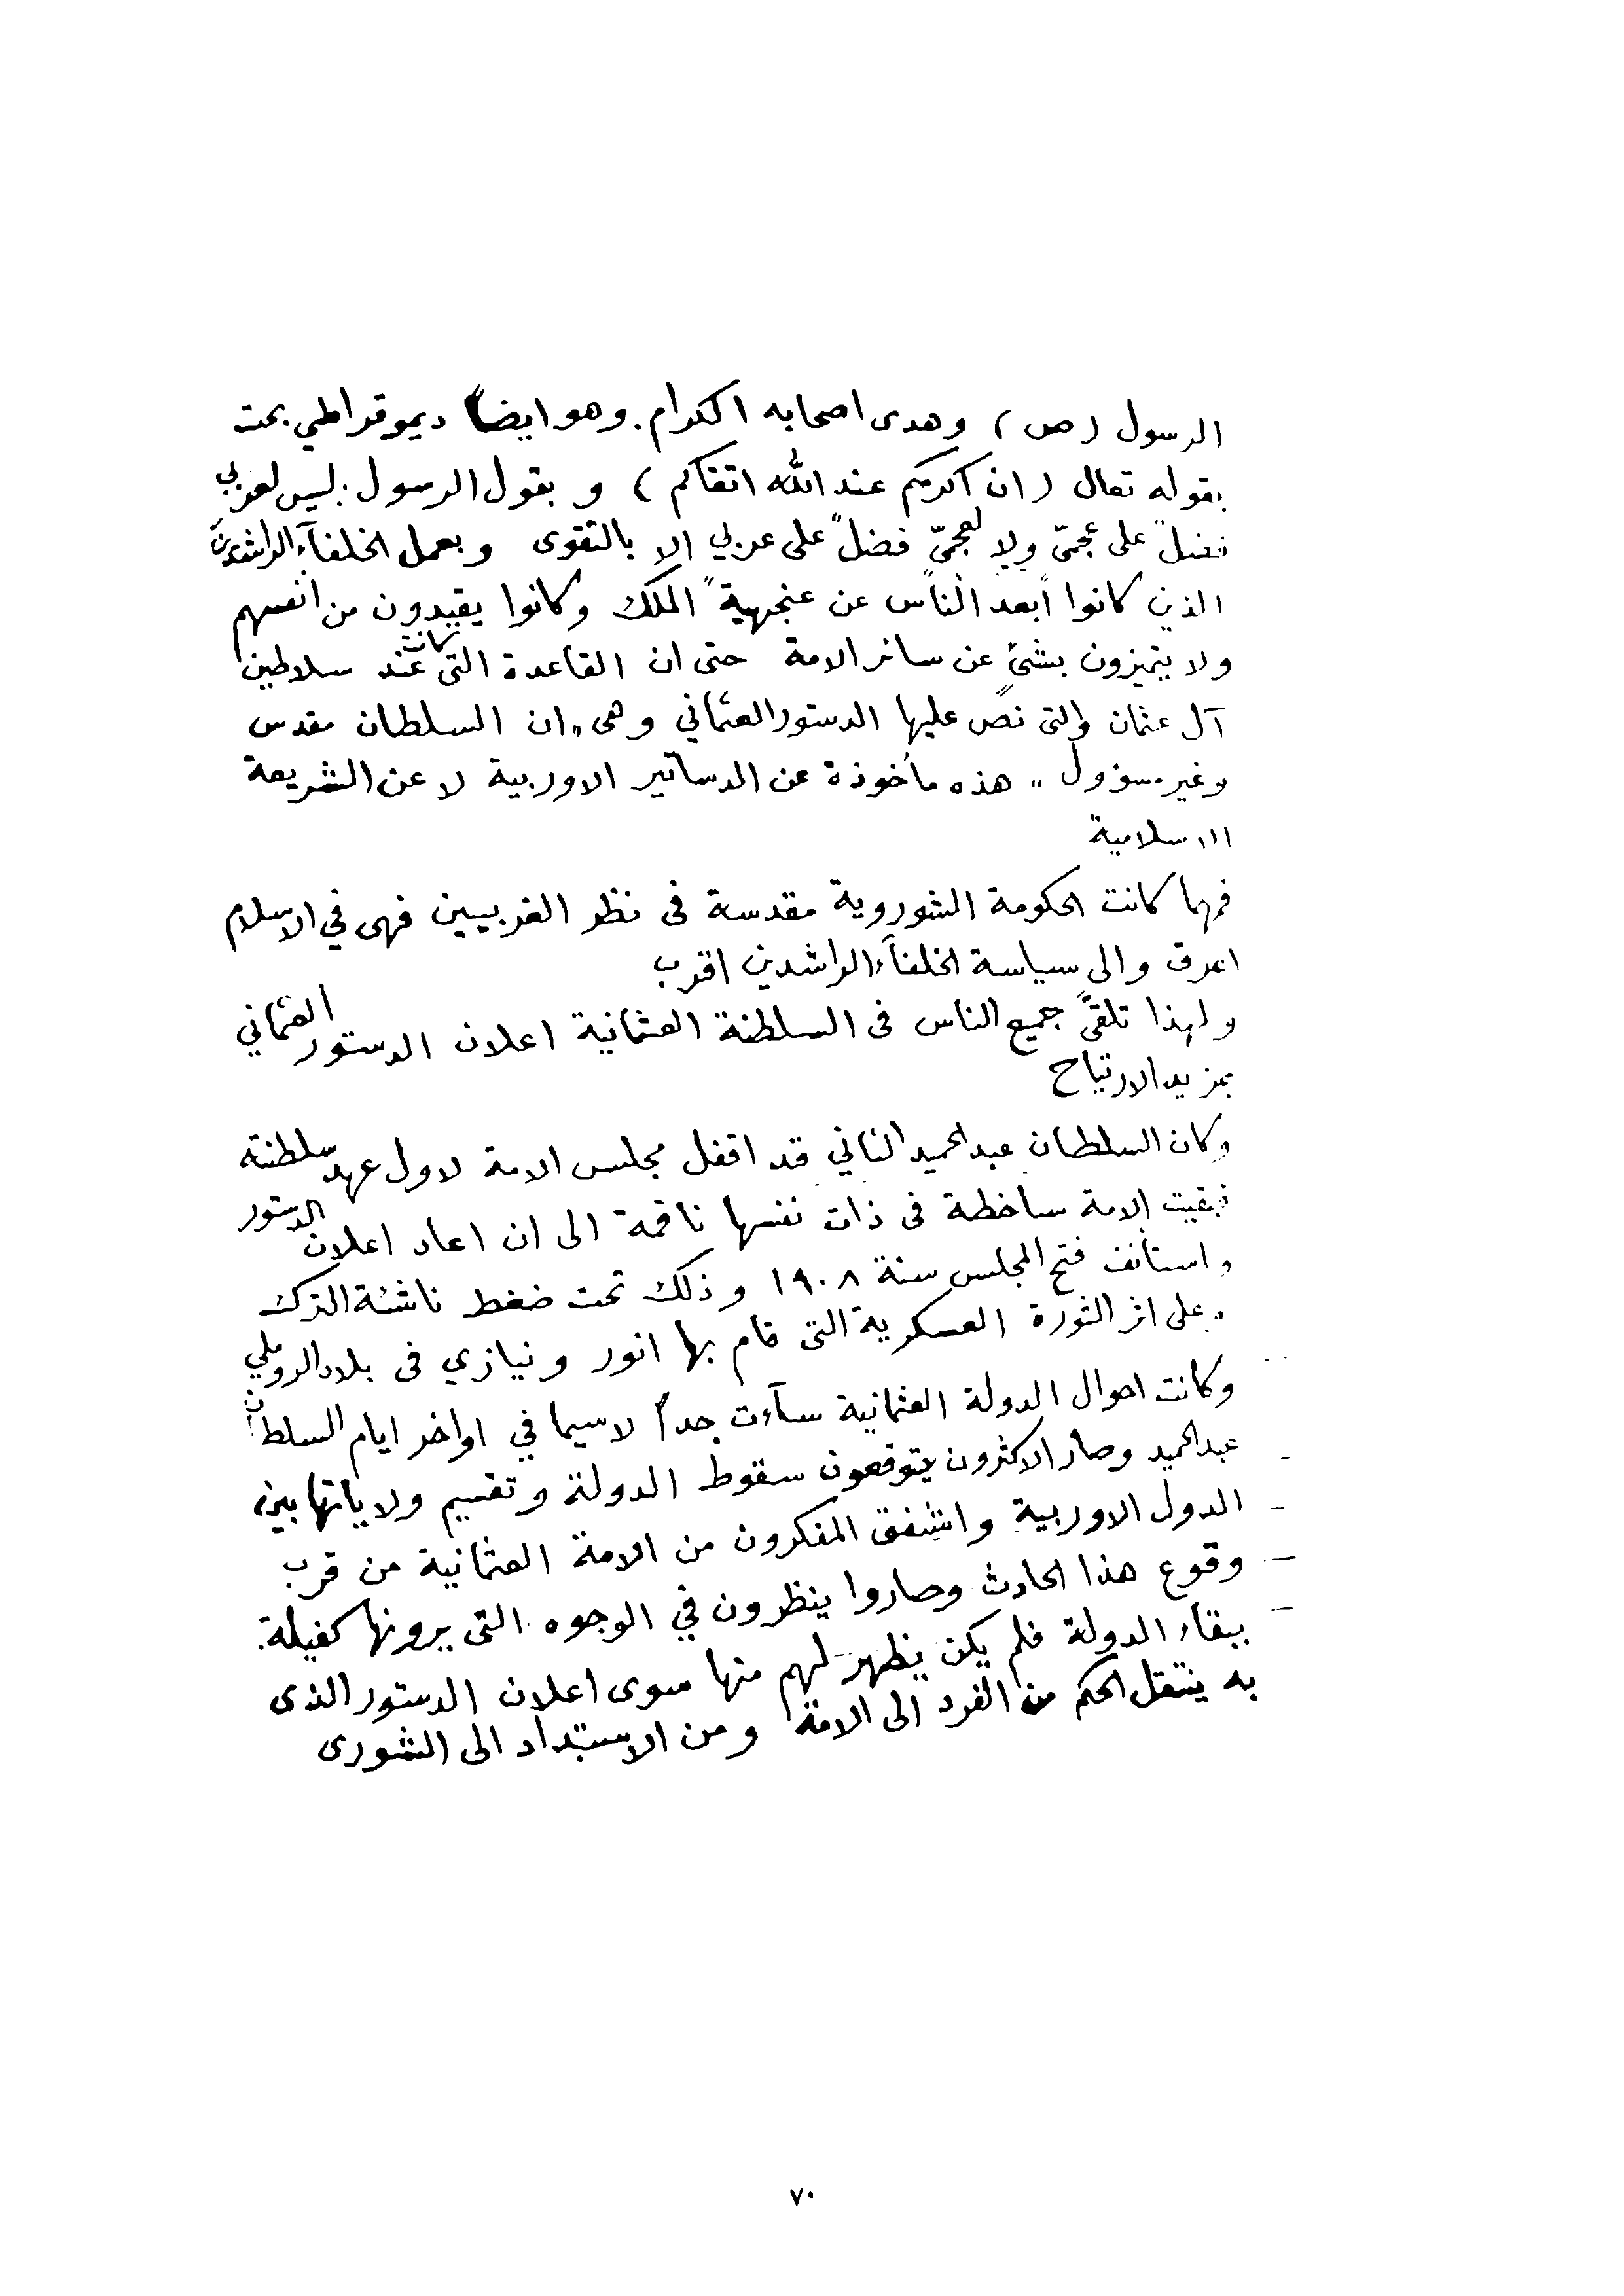 الرسول (ص) وهدى اصحابه الكرام. وهو ايضاً ديموقراطي بحت
بقوله تعالى (ان اكرمكم عند الله اتقاكم) و بقول الرسول: ليس لعربي
فضلٌ على عجميّ ولا لعجميّ فضلٌ على عربي الا بالتقوى وبعمل الخلفآء الراشدين
الذين كانوا ابعد الناس عن عنجهية الملك وكانوا يقيدون من انفسهم
ولا يتميزون بشئ عن سائر الامة حتى ان القاعدة التى كانت عند سلاطين
آل عثمان والتى نصّ عليها الدستور العثماني وهى „ ان السلطان مقدس
وغير مسؤول „ هذه مأخوذة عن الدساتير الاوربية لا عن الشريعة
الاسلامية
فمهما كانت الحكومة الشوروية مقدسة فى نظر الغربيين فهى في الاسلام
اعرق والى سياسة الخلفآء الراشدين اقرب
ولهذا تلقىّ جميع الناس فى السلطنة العثمانية اعلان الدستور العثماني
بمزيد الارتياح
وكان السلطان عبد الحميد الثاني قد اقفل مجلس الامة لاول عهد سلطنته
فبقيت الامة ساخطة فى ذات نفسها ناقمة الى ان اعاد اعلان الدستور
واستأنف فتح المجلس سنة ١٩٠٨ وذلك تحت ضغط ناشئة الترك
وعلى اثر الثورة العسكرية التى قام بها انور ونيازي فى بلاد الروملي
وكانت احوال الدولة العثمانية سآءت جداً لاسيما في اواخر ايام السلطان
عبد الحميد وصار الاكثرون يتوقعون سقوط الدولة وتقسيم ولاياتها بين
الدول الاوربية واشفق المفكرون من الامة العثمانية من قرب
وقوع هذا الحادث وصاروا ينظرون في الوجوه التى يرونها كفيلة
ببقاء الدولة فلم يكن يظهر لهم منها سوى اعلان الدستور الذى
به ينتقل الحكم من الفرد الى الامة ومن الاستبداد الى الشورى
٧٠